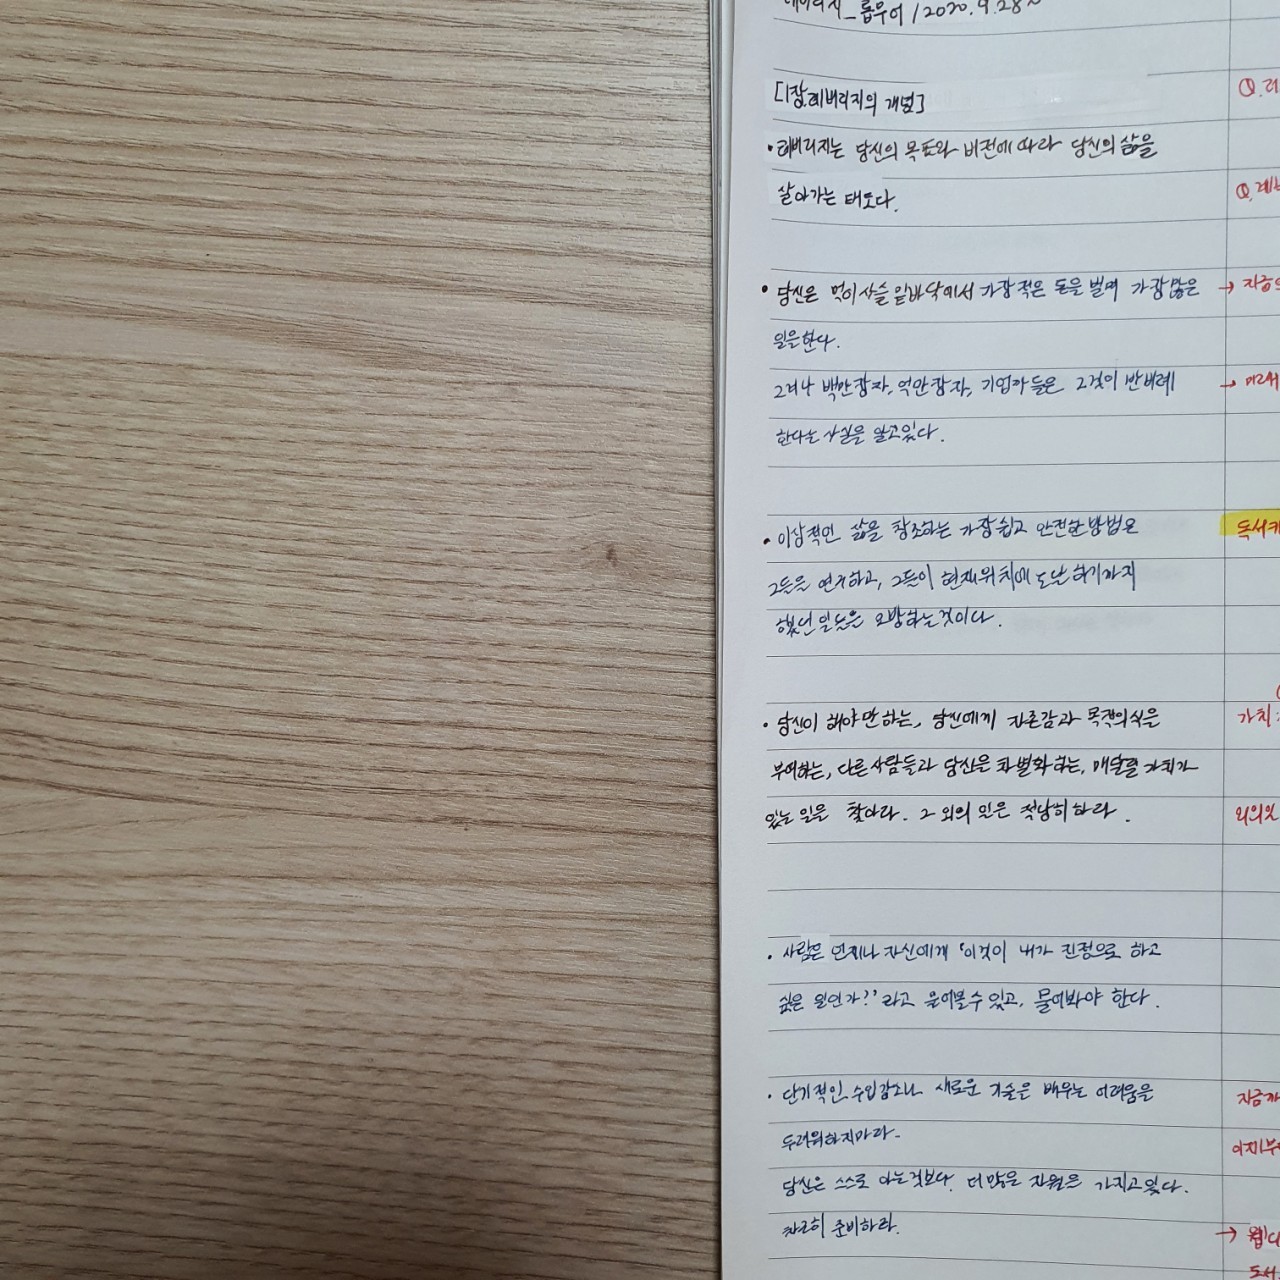 레버리지_롭무어 / 2020.9.28~
[1장.레버리지의 개념]
Q.레
•레버리지는 당신의 목표와 비전에 따라 당신의 삶을
살아가는 태도다.
Q.레버
• 당신은 먹이사슬 밑바닥에서 가장 적은 돈을 벌며 가장 많은
→ 지금의
일을한다.
그러나 백만장자, 억만장자, 기업가들은 그것이 반비례
→
한다는 사실을 알고있다.
• 이상적인 삶을 창조하는 가장 쉽고 안전한 방법은
독서
그들을 연구하고, 그들이 현재위치에 도달하기까지
했던 일들을 모방하는것이다.
• 당신이 해야만 하는, 당신에게 자존감과 목적의식을
가치
부여하는, 다른 사람들과 당신을 차별화하는, 매달릴 가치가
있는 일을 찾아라. 그 외의 일은 적당히 하라.
외의
• 사람은 언제나 자신에게 '이것이 내가 진정으로 하고
싶은 일인가?' 라고 물어볼 수 있고, 물어봐야 한다.
• 단기적인 수입감소나 새로운 기술을 배우는 어려움을
지금까
두려워하지마라.
이제부
당신은 스스로 아는것보다 더 많은 자원을 가지고있다.
차분히 준비하라.
→
도서